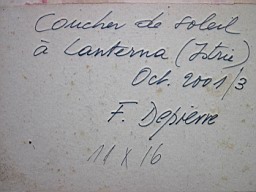 Coucher de soleil
à Lanterna (Istrie)
Oct. 2001/3
F. Depierre
11 x 16